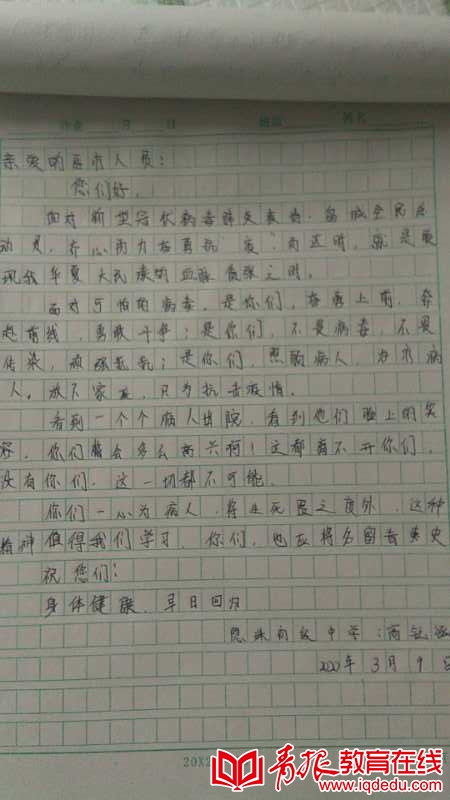 作业 月 日 班级 姓名
亲爱的医疗人员：
您们好。
面对新型冠状病毒肺炎疫情，全民总
动员，齐心协力抗疫；而这时，就是
现我华夏大民族的血脉之时。
面对可怕的病毒，是你们，奋
赴前线，勇敢斗争；是你们，不畏病毒，不畏
传染，顽强抗；是你们，照顾病人，
人。放下家庭，只为抗击疫情。
看到一个个病人出院，看到他们脸上的笑
容，你们将会多么高兴啊！这都离不开你们，
没有你们，这一切都不可能。
你们一心为病人，将生死置之度外，这种
精神值得我们学习，你们，也应将名留青史
祝您们：
身体健康、早日回归
中学：商
2020年3月9日
20X2
青报教育在线
www.iqdedu.com